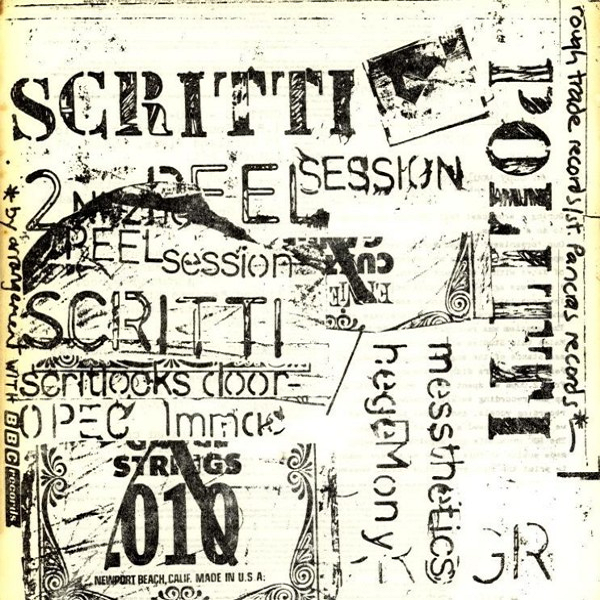 SCRITTI
POLITTI
rough trade records/st Pancras records *
2ND PEEL SESSION
PEEL session
SCRITTI
scritlocks door
OPEC Immac
messthetics
hegemony
* by arrangement with BBC records
STRINGS
.010
NEWPORT BEACH, CALIF. MADE IN U.S.A.